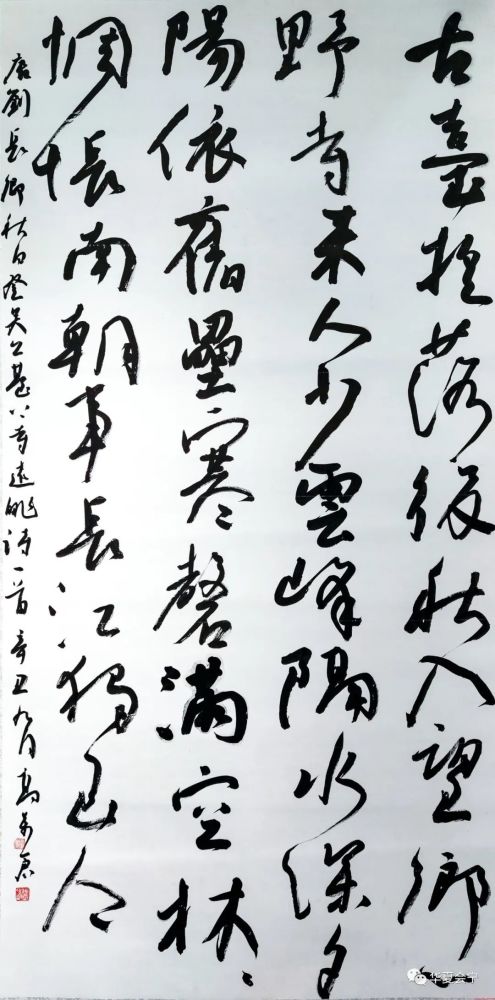 古臺摇落後秋入望鄉心
野寺来人少雲峰隔水深夕
陽依舊壘寒磬滿空林
惆悵南朝事長江獨至今
唐劉長卿秋日登吴公臺上寺遠眺詩一首辛丑九月高
华夏会宁